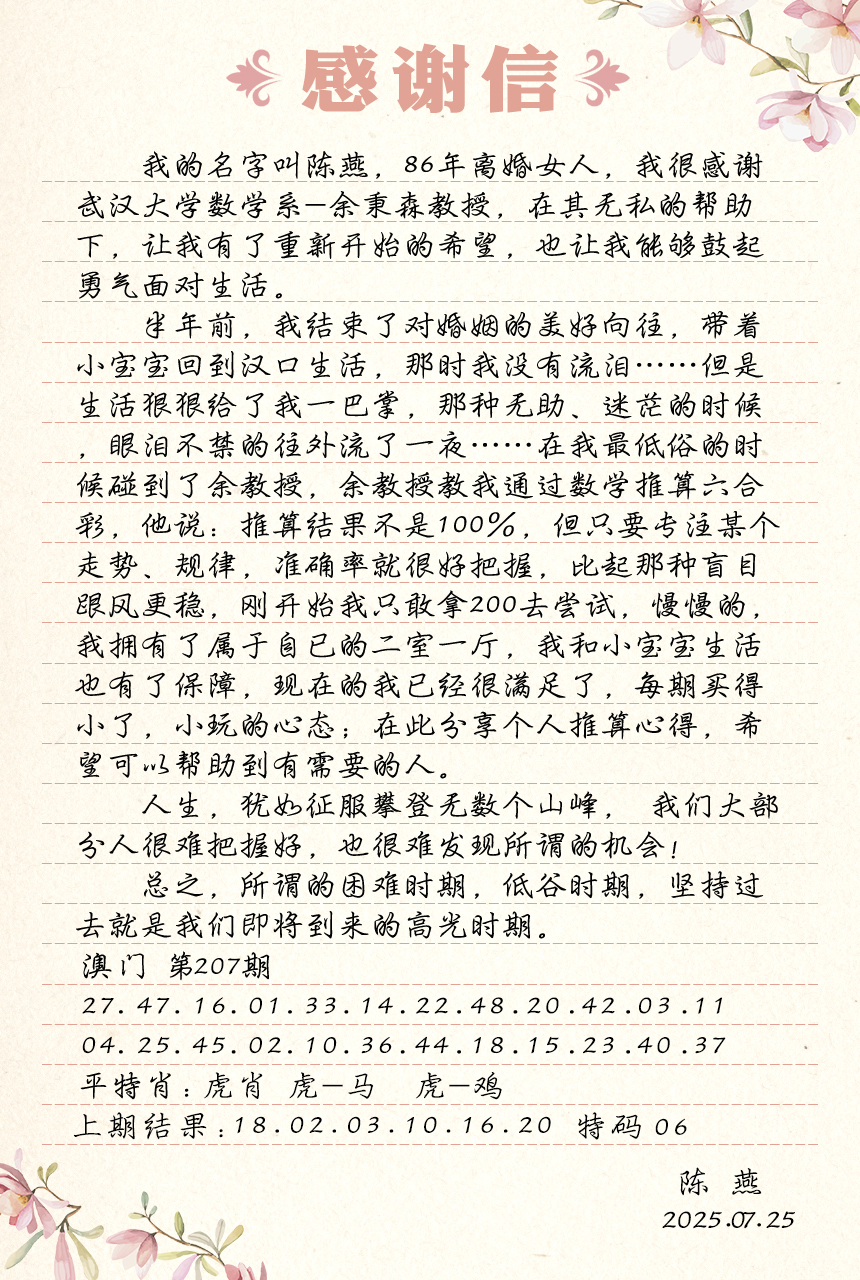 感谢信
我的名字叫陈燕，86年离婚女人，我很感谢
武汉大学数学系—余秉森教授，在其无私的帮助
下，让我有了重新开始的希望，也让我能够鼓起
勇气面对生活。
半年前，我结束了对婚姻的美好向往，带着
小宝宝回到汉口生活，那时我没有流泪……但是
生活狠狠给了我一巴掌，那种无助、迷茫的时候
，眼泪不禁的往外流了一夜……在我最低俗的时
候碰到了余教授，余教授教我通过数学推算六合
彩，他说：推算结果不是100%，但只要专注某个
走势、规律，准确率就很好把握，比起那种盲目
跟风更稳，刚开始我只敢拿200去尝试，慢慢的，
我拥有了属于自已的二室一厅，我和小宝宝生活
也有了保障，现在的我已经很满足了，每期买得
小了，小玩的心态；在此分享个人推算心得，希
望可以帮助到有需要的人。
人生，犹如征服攀登无数个山峰， 我们大部
分人很难把握好，也很难发现所谓的机会！
总之，所谓的困难时期，低谷时期，坚持过
去就是我们即将到来的高光时期。
澳门 第207期
27.47.16.01.33.14.22.48.20.42.03.11
04.25.45.02.10.36.44.18.15.23.40.37
平特肖：虎肖 虎—马 虎—鸡
上期结果：18.02.03.10.16.20 特码 06
陈 燕
2025.07.25